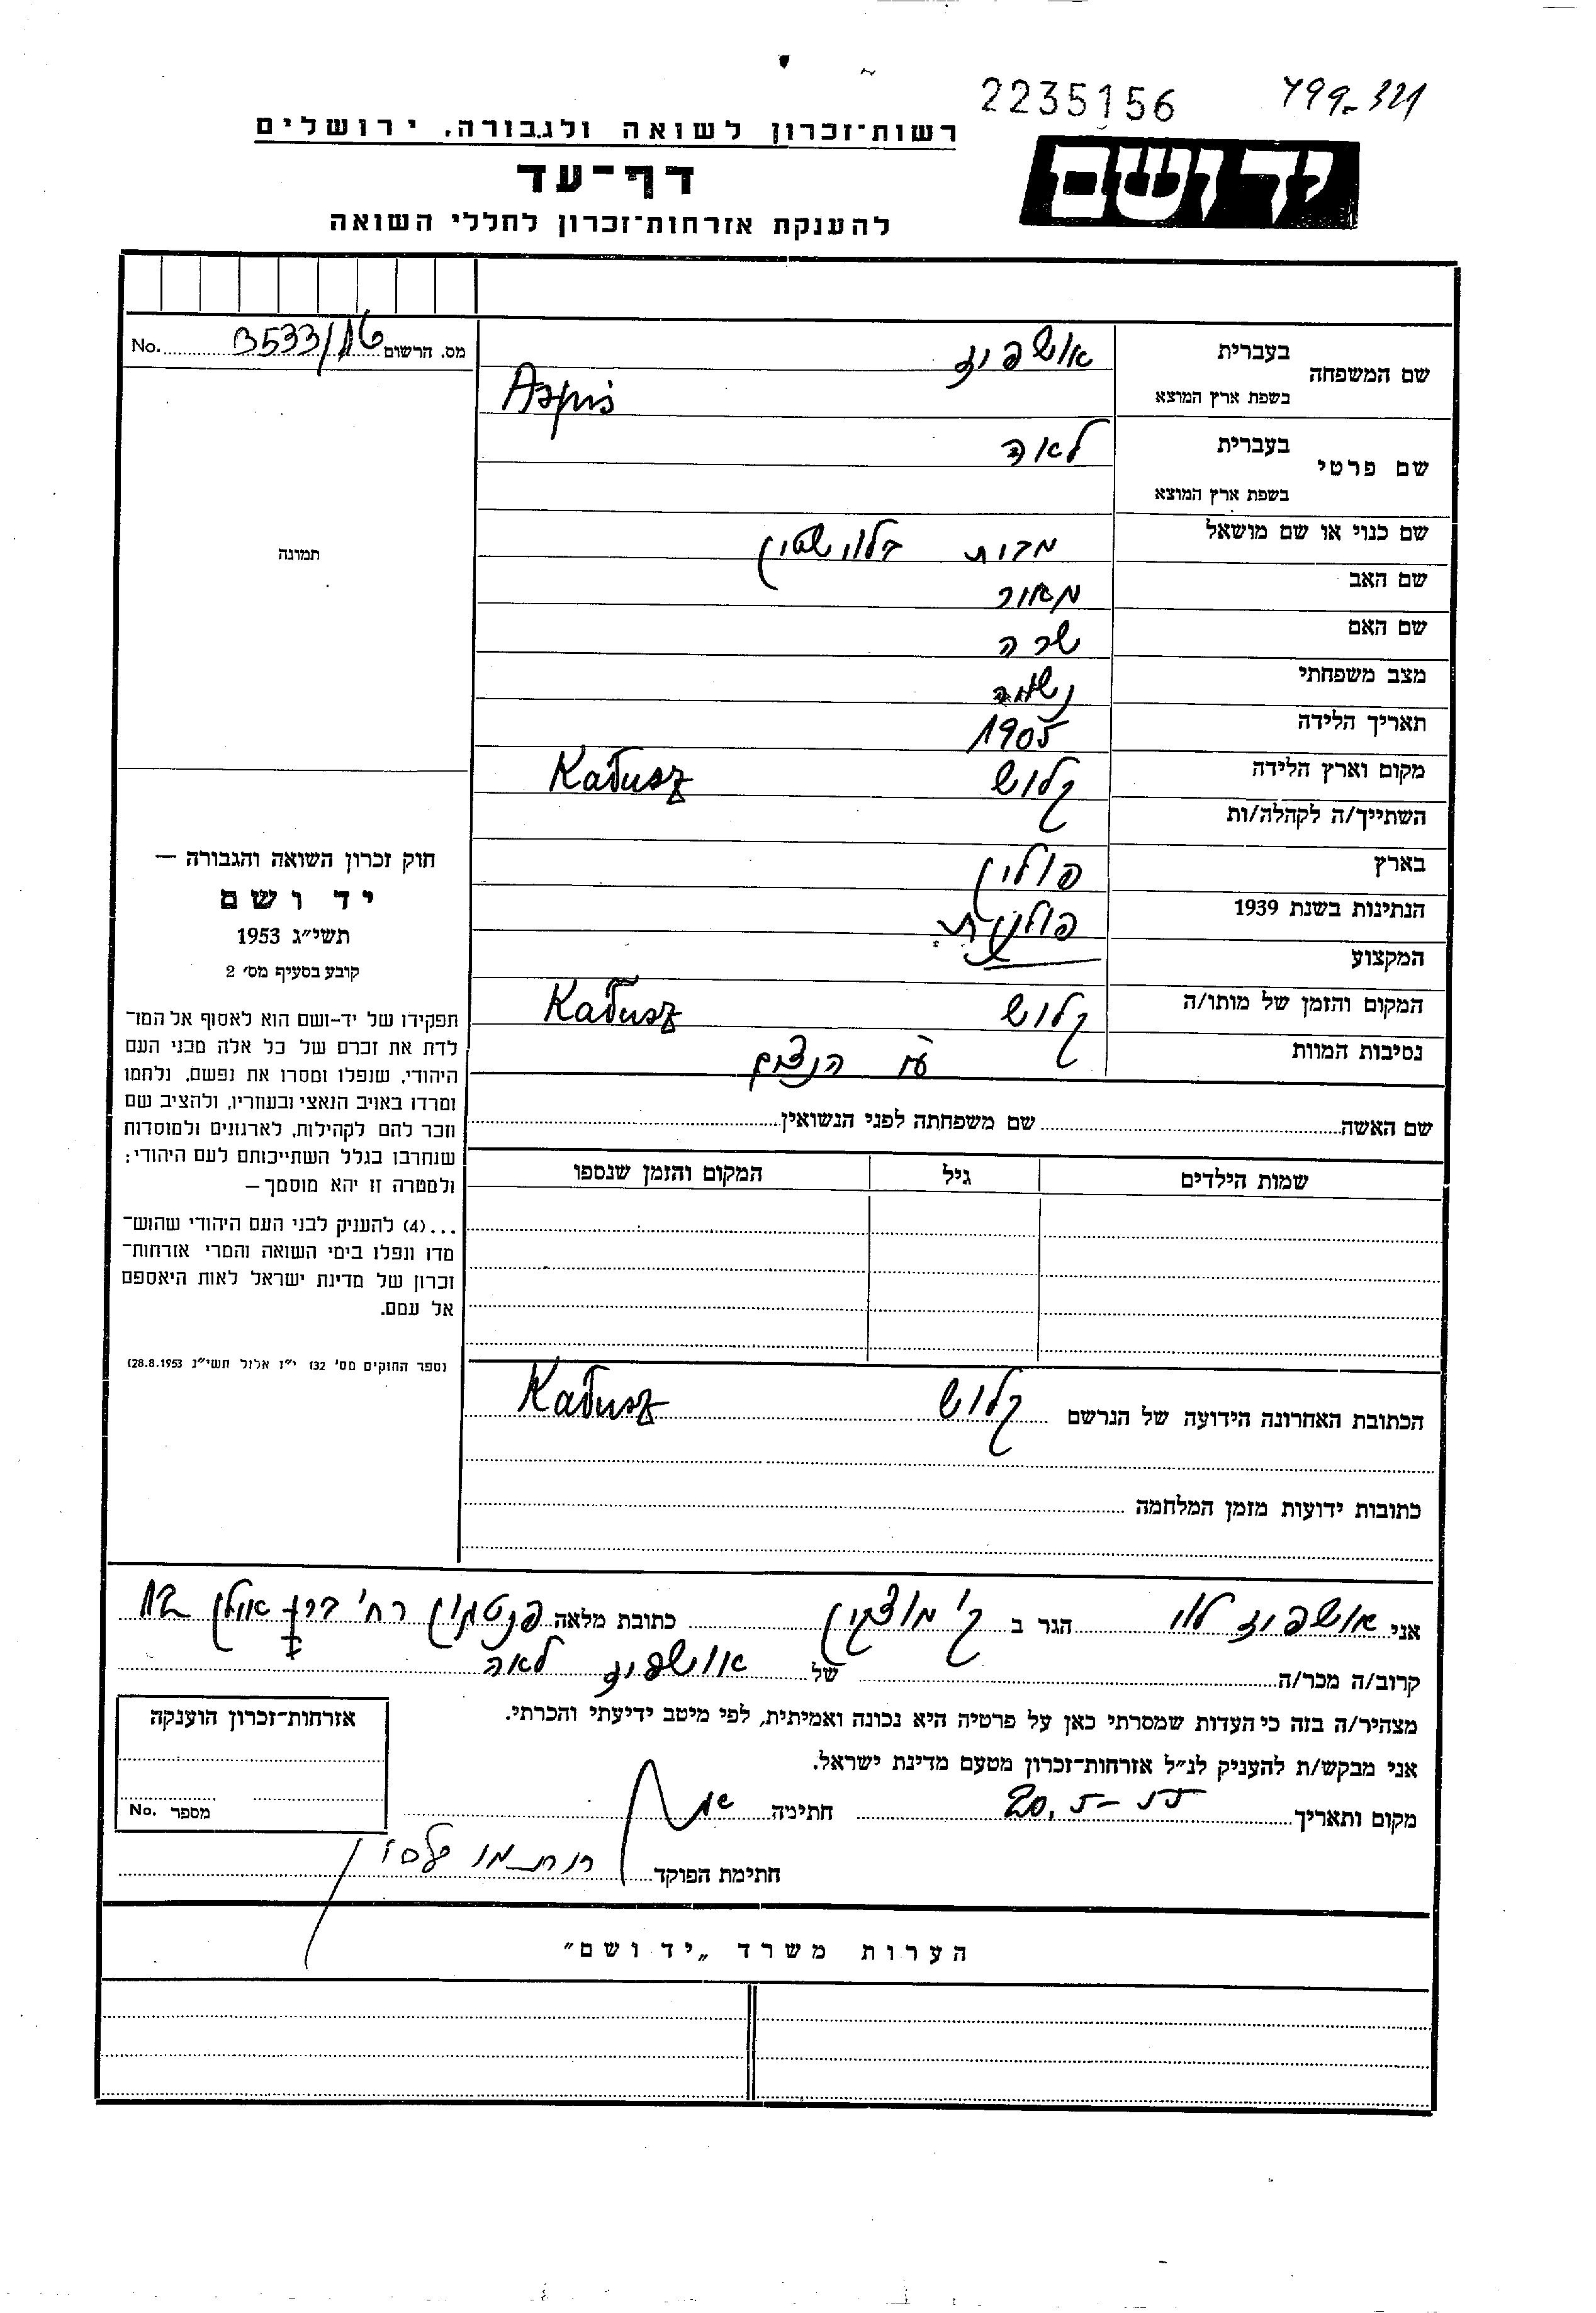 2235156 799-321
רשות־זכרון לשואה ולגבורה, ירושלים
יד ושם
דף־עד
להענקת אזרחות־זכרון לחללי השואה
מס. הרשום 3533/16 No.
שם המשפחה בעברית אושפיז
בשפת ארץ המוצא Aspis
שם פרטי בעברית לאה
בשפת ארץ המוצא
שם כנוי או שם מושאל מבית בלוישטיין
שם האב מאיר
שם האם שרה
מצב משפחתי נשואה
תאריך הלידה 1905
מקום וארץ הלידה קלוש Kałusz
השתייך/ה לקהלה/ות
בארץ פולין
הנתינות בשנת 1939 פולנית
המקצוע
המקום והזמן של מותו/ה קלוש Kałusz
נסיבות המוות ע״י הנאצים
תמונה
חוק זכרון השואה והגבורה —
יד ושם
תשי״ג 1953
קובע בסעיף מס׳ 2
תפקידו של יד-ושם הוא לאסוף אל המו־
לדת את זכרם של כל אלה מבני העם
היהודי, שנפלו ומסרו את נפשם, נלחמו
ומרדו באויב הנאצי ובעוזריו, ולהציב שם
וזכר להם לקהילות, לארגונים ולמוסדות
שנחרבו בגלל השתייכותם לעם היהודי;
ולמטרה זו יהא מוסמך —
...(4) להעניק לבני העם היהודי שהוש־
מדו ונפלו בימי השואה והמרי אזרחות־
זכרון של מדינת ישראל לאות היאספם
אל עמם.
(ספר החוקים מס׳ 132 י״ז אלול תשי״ג 28.8.1953)
שם האשה שם משפחתה לפני הנשואין
שמות הילדים גיל המקום והזמן שנספו
הכתובת האחרונה הידועה של הנרשם קלוש Kałusz
כתובות ידועות מזמן המלחמה
אני אושפיז לוי הגר ב ק' מוצקין כתובת מלאה רח'
קרוב/ה מכר/ה של אושפיז לאה
מצהיר/ה בזה כי העדות שמסרתי כאן על פרטיה היא נכונה ואמיתית, לפי מיטב ידיעתי והכרתי.
אני מבקש/ת להעניק לנ״ל אזרחות־זכרון מטעם מדינת ישראל.
מקום ותאריך 20.5-55 חתימה
חתימת הפוקד
אזרחות־זכרון הוענקה
מספר No.
הערות משרד „יד ושם״